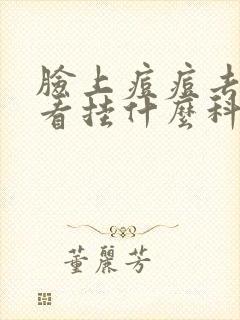 臉上痘痘去
看挂什麼科
董麗芳